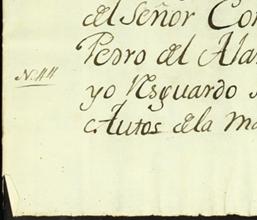 del Señor Con
Pedro del Alar
N. 44
yo Resguardo
Autos dela Ma